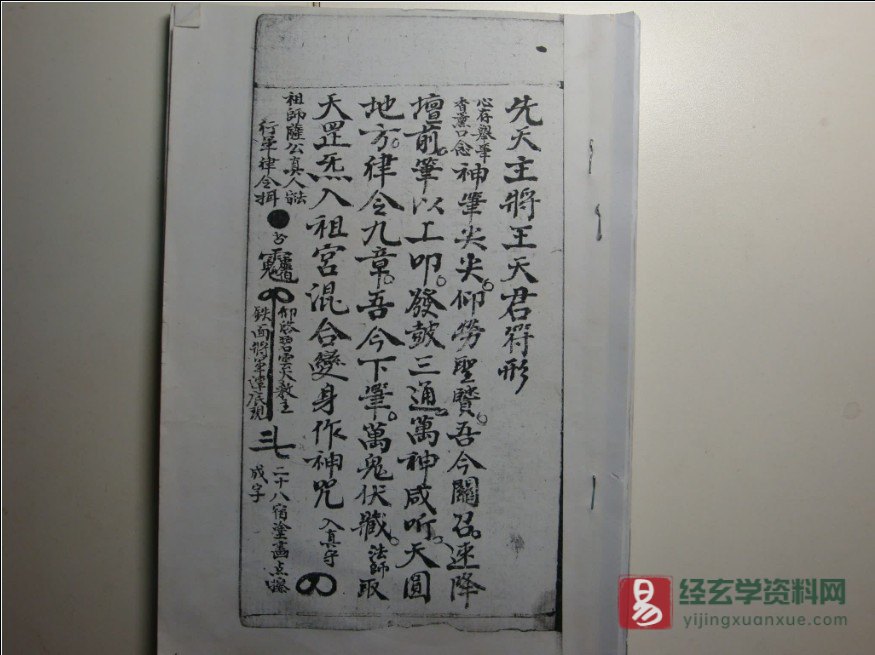 先天主將王天君符形
心存舉筆
香薰口念
神筆尖尖仰勞聖賢吾今關召速降
壇前筆以工叩發鼓三通萬神咸听天圓
地方律令九章吾今下筆萬鬼伏藏法師取
天罡炁入祖宮混合變身作神咒入真守
祖師薩公真人
行軍律令
仰啓碧霄天教主
鉄面將軍
二十八宿塗畫
成字
易 经玄学资料网
yijingxuanxue.com